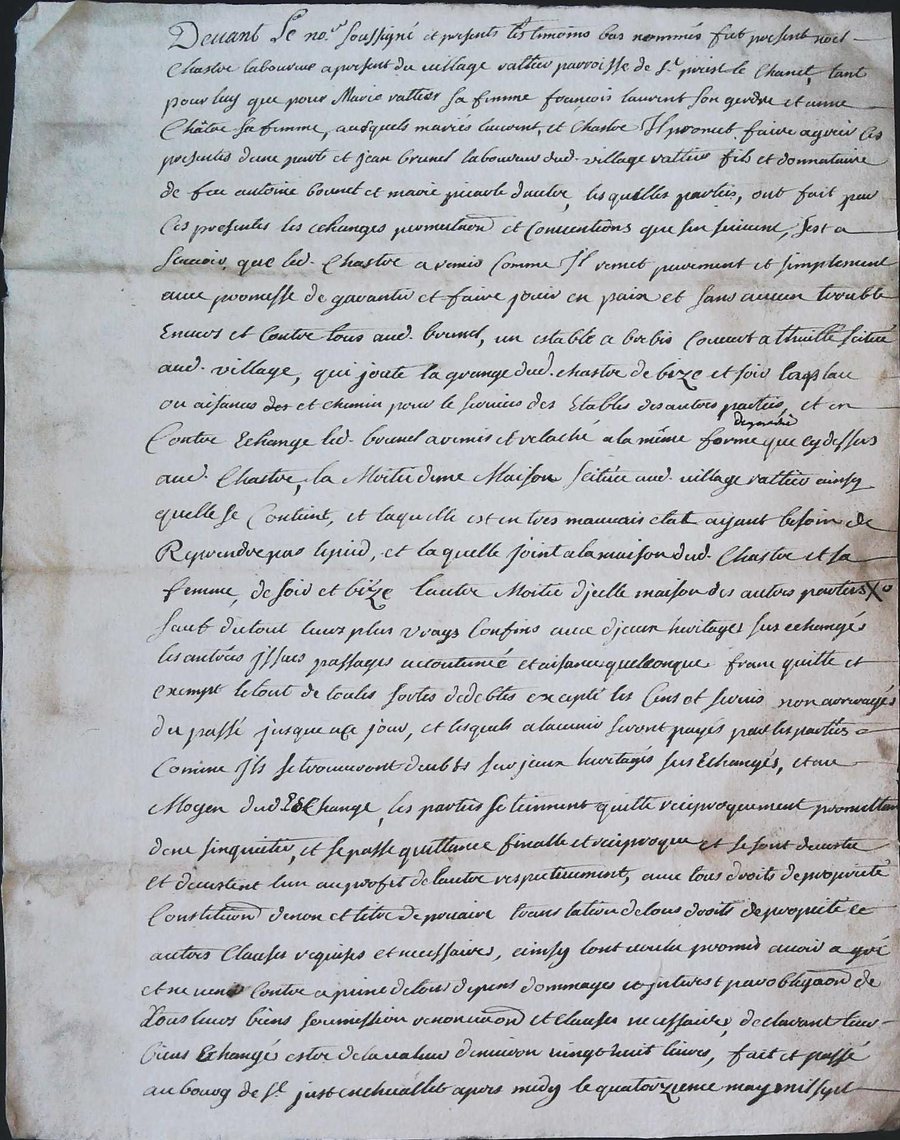 Devant Le no.re soussigné et presents les temoins bas nommés fut present noel
Chastre laboureur a present du village vattier parroisse de St. priest le Chanet, tant
pour luy que pour Marie vattier sa femme françois laurent son gendre et anne
Châtre sa femme, ausquels mariés laurent, et Chastre Il promet faire agreer Ces
presentes dune part et jean brunel laboureur dud. village vattier fils et donnataire
de feu antoine bounet et marie picarle dautre, les quelles parties, ont fait par
Ces presentes les echanges permutaõn et Conventions que sen suivent, sest a
scavoir, que led. Chastre a remis Comme Il remet purement et simplement
avec promesse de garantir et faire jouir en paix et sans aucun trouble
Envers et Contre tous aud. brunel, un estable a berbis Couvert a thuille scitué
aud. village, qui joute la grange dud. chastre de bize et soir la place
ou aisances et chemin pour le services des Etables des autres parties, et en
Contre Echange led. brunel a remis et relaché a la même forme que cy dessus
aud. Chastre, la Moitié dune Maison scituée aud. village vattier ainsy
quelle se Contient, et laquelle est en tres mauvais etat ayant besoin de
Reprendre par le pied, et la quelle joint a la maison dud. Chastre et sa
femme, de soir et bize lautre Moitié djcelle maison des autres parties X
sauf du tout leurs plus vrays Confins avec djceux heritages sus echangés
les antrées jssues passages accoutumée et aisance quelconque franc quitte et
exempt le tout de toutes sortes de debtes excepté les Cens et servis non arreragés
du passé jusque a ce jour, et lesquels a lavenir seront payés par les parties
Comme Ils se trouveront deubts sur jceux heritages sus Echangés, et au
Moyen dud. Echange, les parties se tiennent quitte reciproquement promettant
de ne sinquieter, et se passe quittance finalle et reciproque et se sont devestu
et devestent lun au profit de lautre respectivement, avec tous droits de proprieté
Constitution de nom et titre de precaire translation de tous droits de proprieté et
autres Clauses requises et necessaires, ainsy lont voulu promis avoir a gré
et ne venir Contre a peine de tous depens dommages et jnterest par obligaõn de
Tous leurs biens soumission renonciaõn et Clauses necessaires, declarant leurs
biens Echangé estre de la valeur denviron vingt huit livres, fait et passé
au bourg de St. just en chevallet apres midy le quatorzieme may mil sept